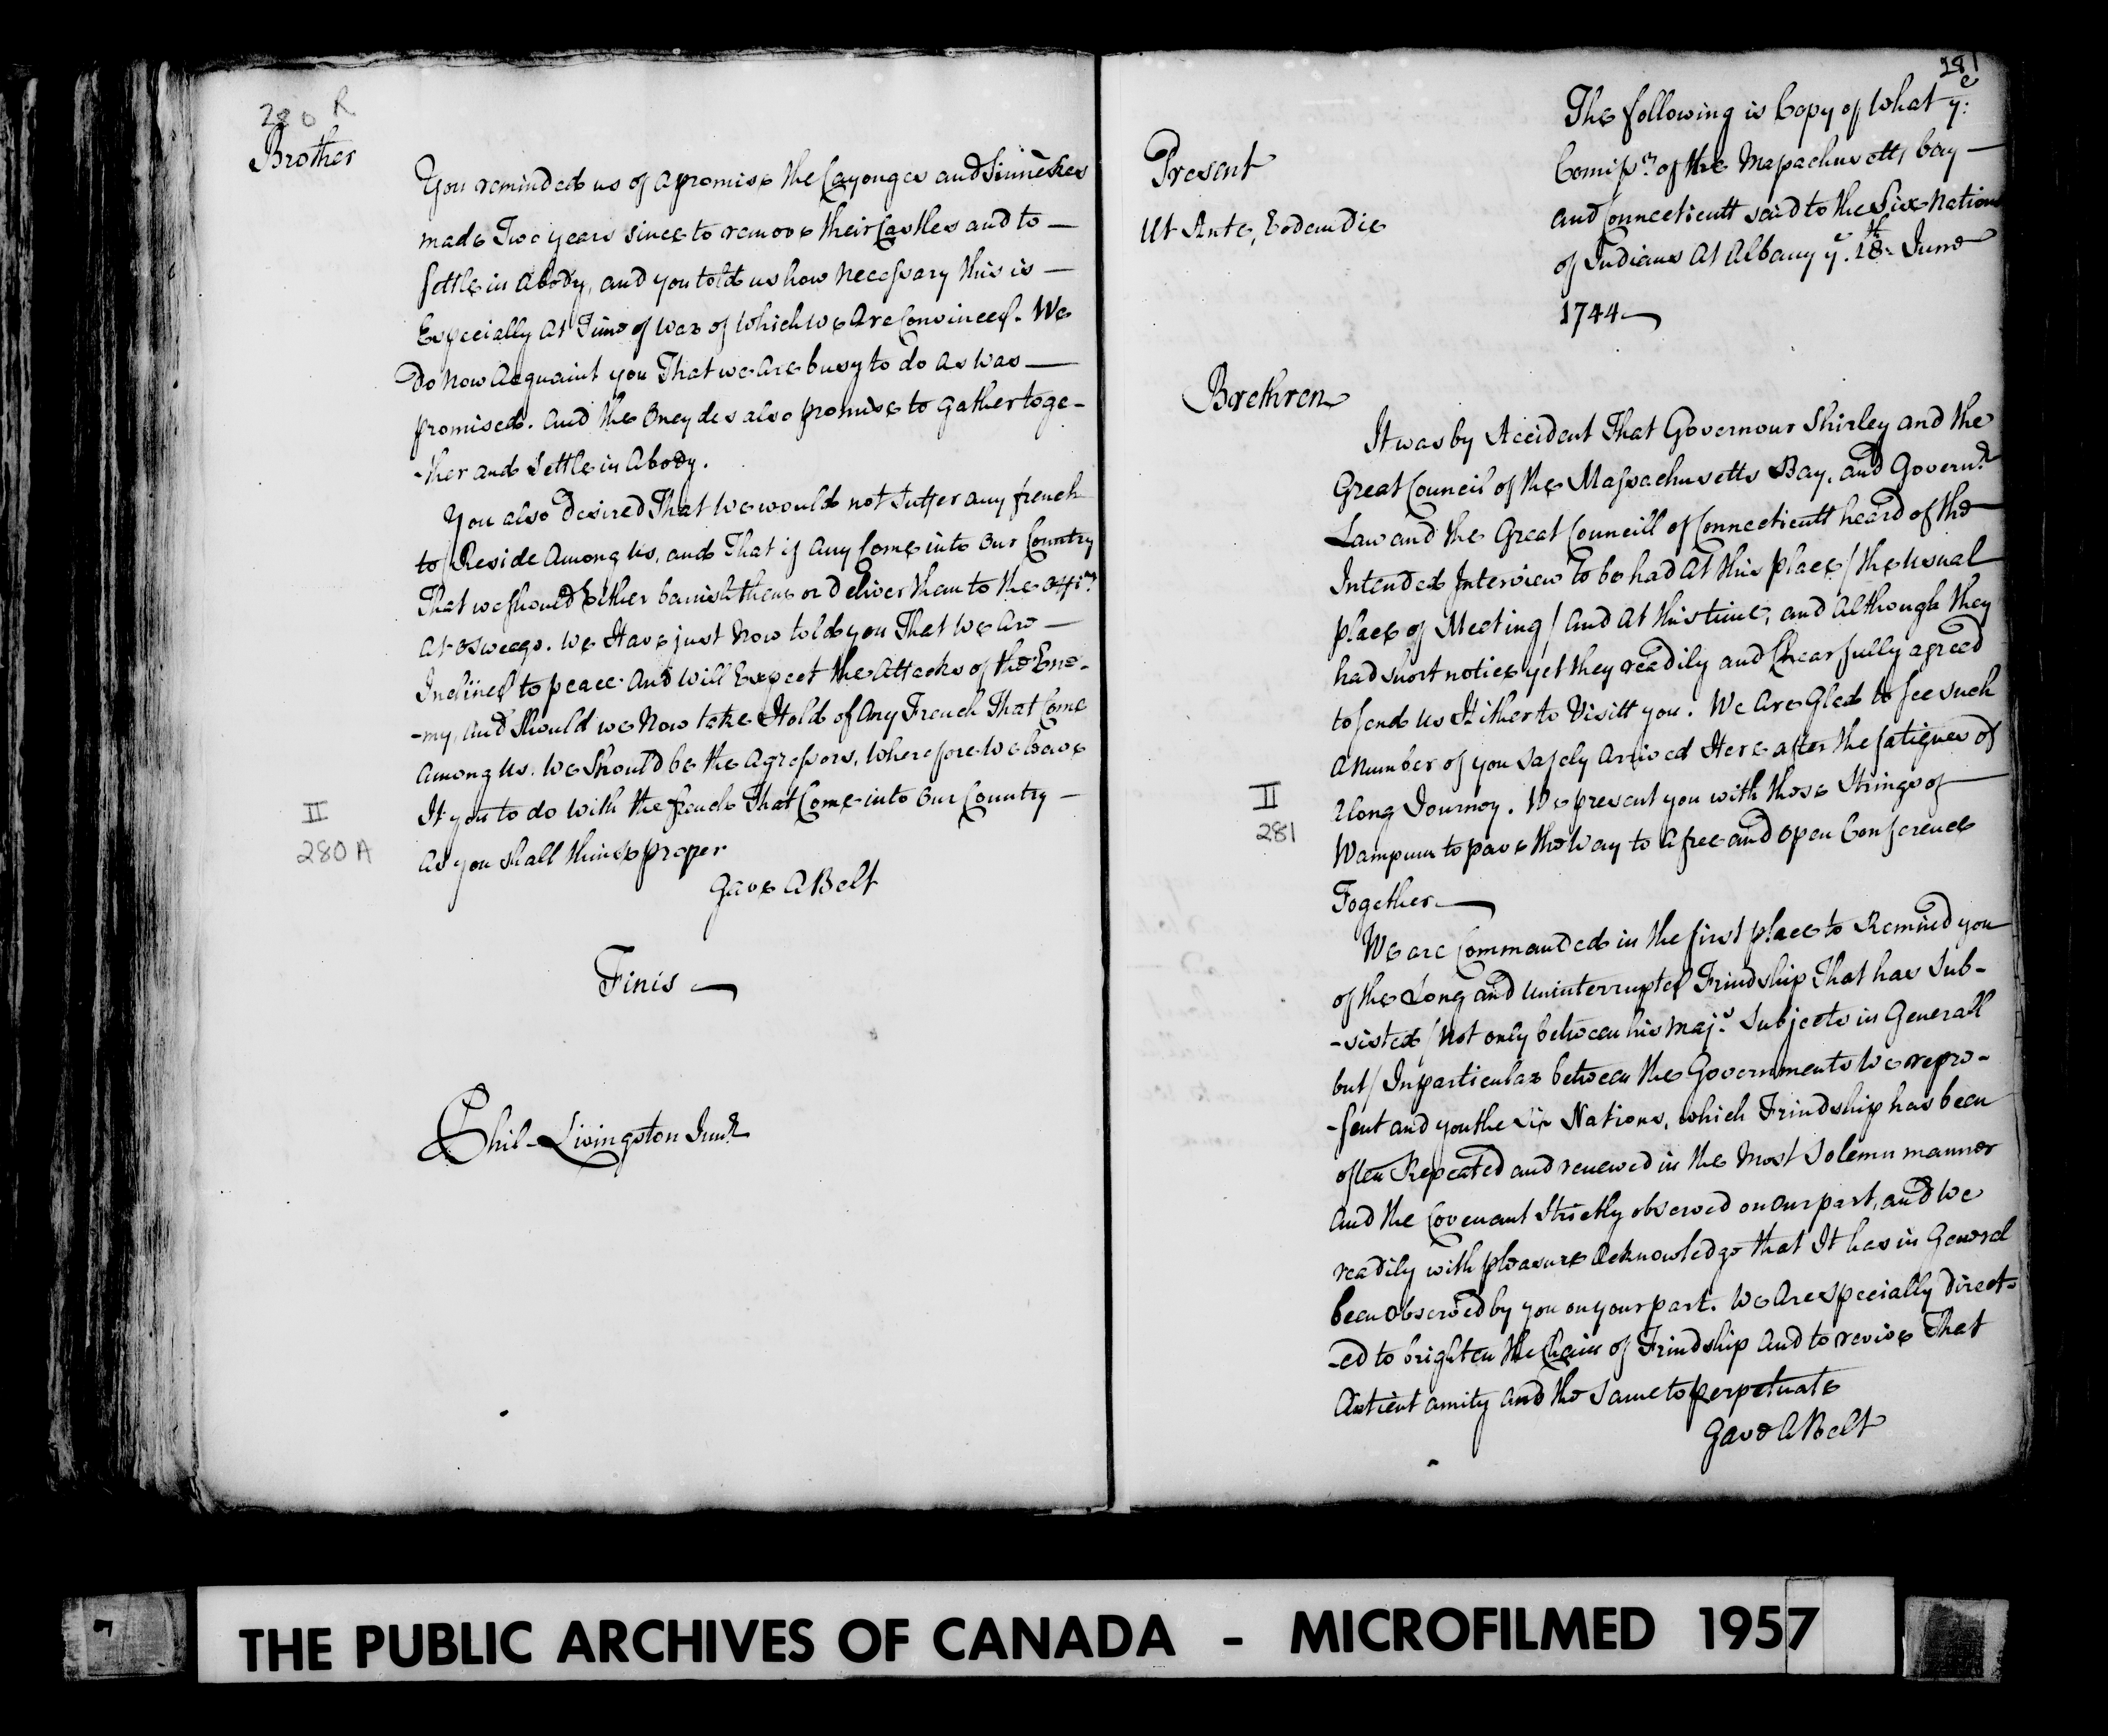 280 R
Brother
You reminded us of a promise the Cayouges and Sinnekes
made Two years since to remove their Castles and to —
settle in a body, and you told us how necessary this is —
Especially at Time of War of which we Are Convinced. We
Do now acquaint you That we are busy to do as was —
promised. and the Oneydes also promise to gather toge-
-ther and Settle in a body.
You also desired That we would not Suffer any french
to Reside Among us, and That if any Come into our Country
That we should Either banish them or deliver them to the offi.rs
at Osweego. We Have just Now told you That We Are —
Inclined to peace and will Expect the Attacks of the Ene-
-my, and Should we Now take Hold of Any French That Come
among us. We Should be the Agressors, Wherefore We leave
It you to do with the french That Come into Our Country —
as you shall think proper
Gave A Belt
II
280 A
Finis
Phil Livingston Junr
281
The following is Copy of What y:e
Comiss.rs of the Massachusetts bay —
and Connecticutt said to the Six Nations
of Indians At Albany y.e 18.th June
1744
Present
Ut Ante, Eodem die
Brethren
It was by Accident That Governour Shirley and the
Great Council of the Massachusetts Bay, and Govern.r
Law and the Great Councill of Connecticutt heard of the
Intended Interview to be had at this place / the usual
place of Meeting / and at this time, and although they
had short notice yet they readily and Chearfully agreed
to send us Hither to Visitt you. We Are Glad to see such
a number of you safely arrived Here after the fatigues of
a long Journey. We present you with these Strings of
Wampum to pave the Way to a free and open Conference
Together
II
281
We are Commanded in the first place to Remind you
of the Long and uninterrupted Frindship That has Sub-
-sisted / not only between his Maj.s Subjects in Generall
but / In particular between the Governments We repre-
-sent and you the Six Nations, which Frindship has been
often Repeated and renewed in the Most Solemn manner
and the Covenant Strictly observed on our part, and We
readily with pleasure acknowledge that It has in General
been observed by you on your part. We Are specially direct-
-ed to brighten the Chain of Frindship and to revive That
Antient amity and the same to perpetuate
Gave A Belt
THE PUBLIC ARCHIVES OF CANADA - MICROFILMED 1957